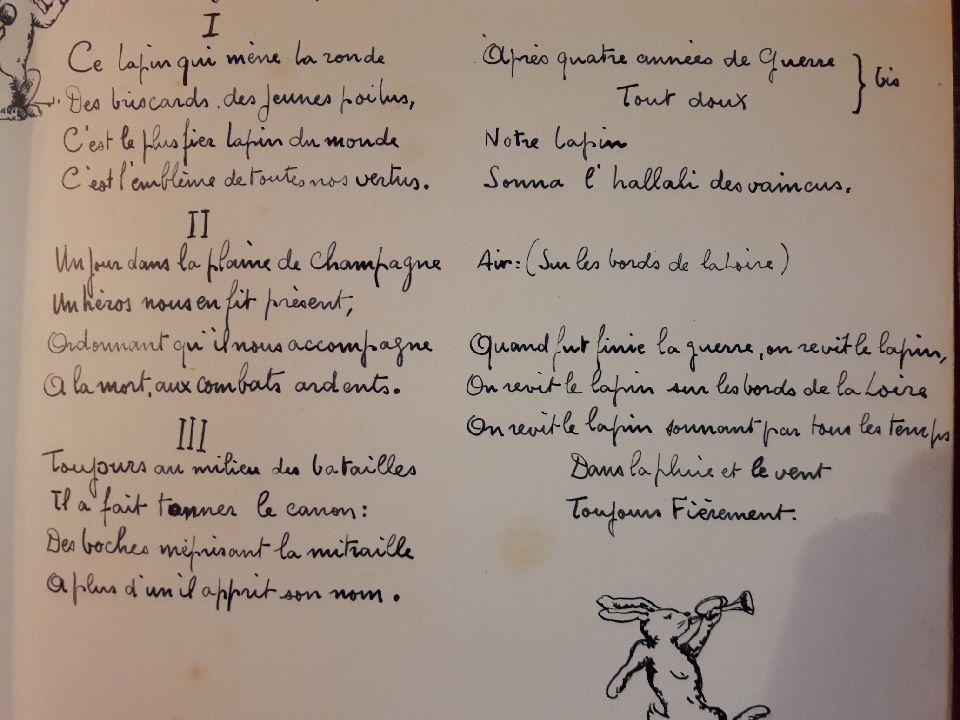 I
Ce lapin qui mène la ronde
Des briscards des jeunes poilus,
C'est le plus fier lapin du monde
C'est l'emblème de toutes nos vertus.
II
Un jour dans la plaine de Champagne
Un héros nous en fit présent,
Ordonnant qu'il nous accompagne
A la mort, aux combats ardents.
III
Toujours au milieu des batailles
Il a fait tonner le canon:
Des boches méprisant la mitraille
A plus d'un il apprit son nom.
Après quatre années de Guerre
Tout doux
} bis
Notre lapin
Sonna l'hallali des vaincus.
Air: (Sur les bords de la Loire)
Quand fut finie la guerre, on revit le lapin,
On revit le lapin sur les bords de la Loire
On revit le lapin sonnant par tous les temps
Dans la pluie et le vent
Toujours Fièrement.